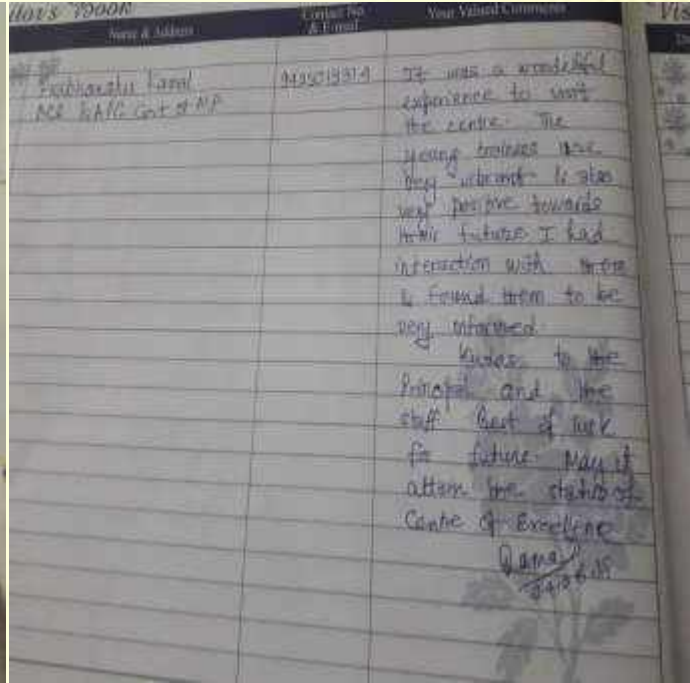 Visitor's Book
Name & Address
Contact No. & E-mail
Your Valued Comments
Vis
Kamal
Govt of MP
It was a wonderful
experience to visit
the centre. The
young trainees are
very vibrant & also
very positive towards
their future I had
interaction with them
& found them to be
very informed.
Kudos to the
Principal and the
staff Best of luck
for future. May it
attain the status of
Centre of Excellence